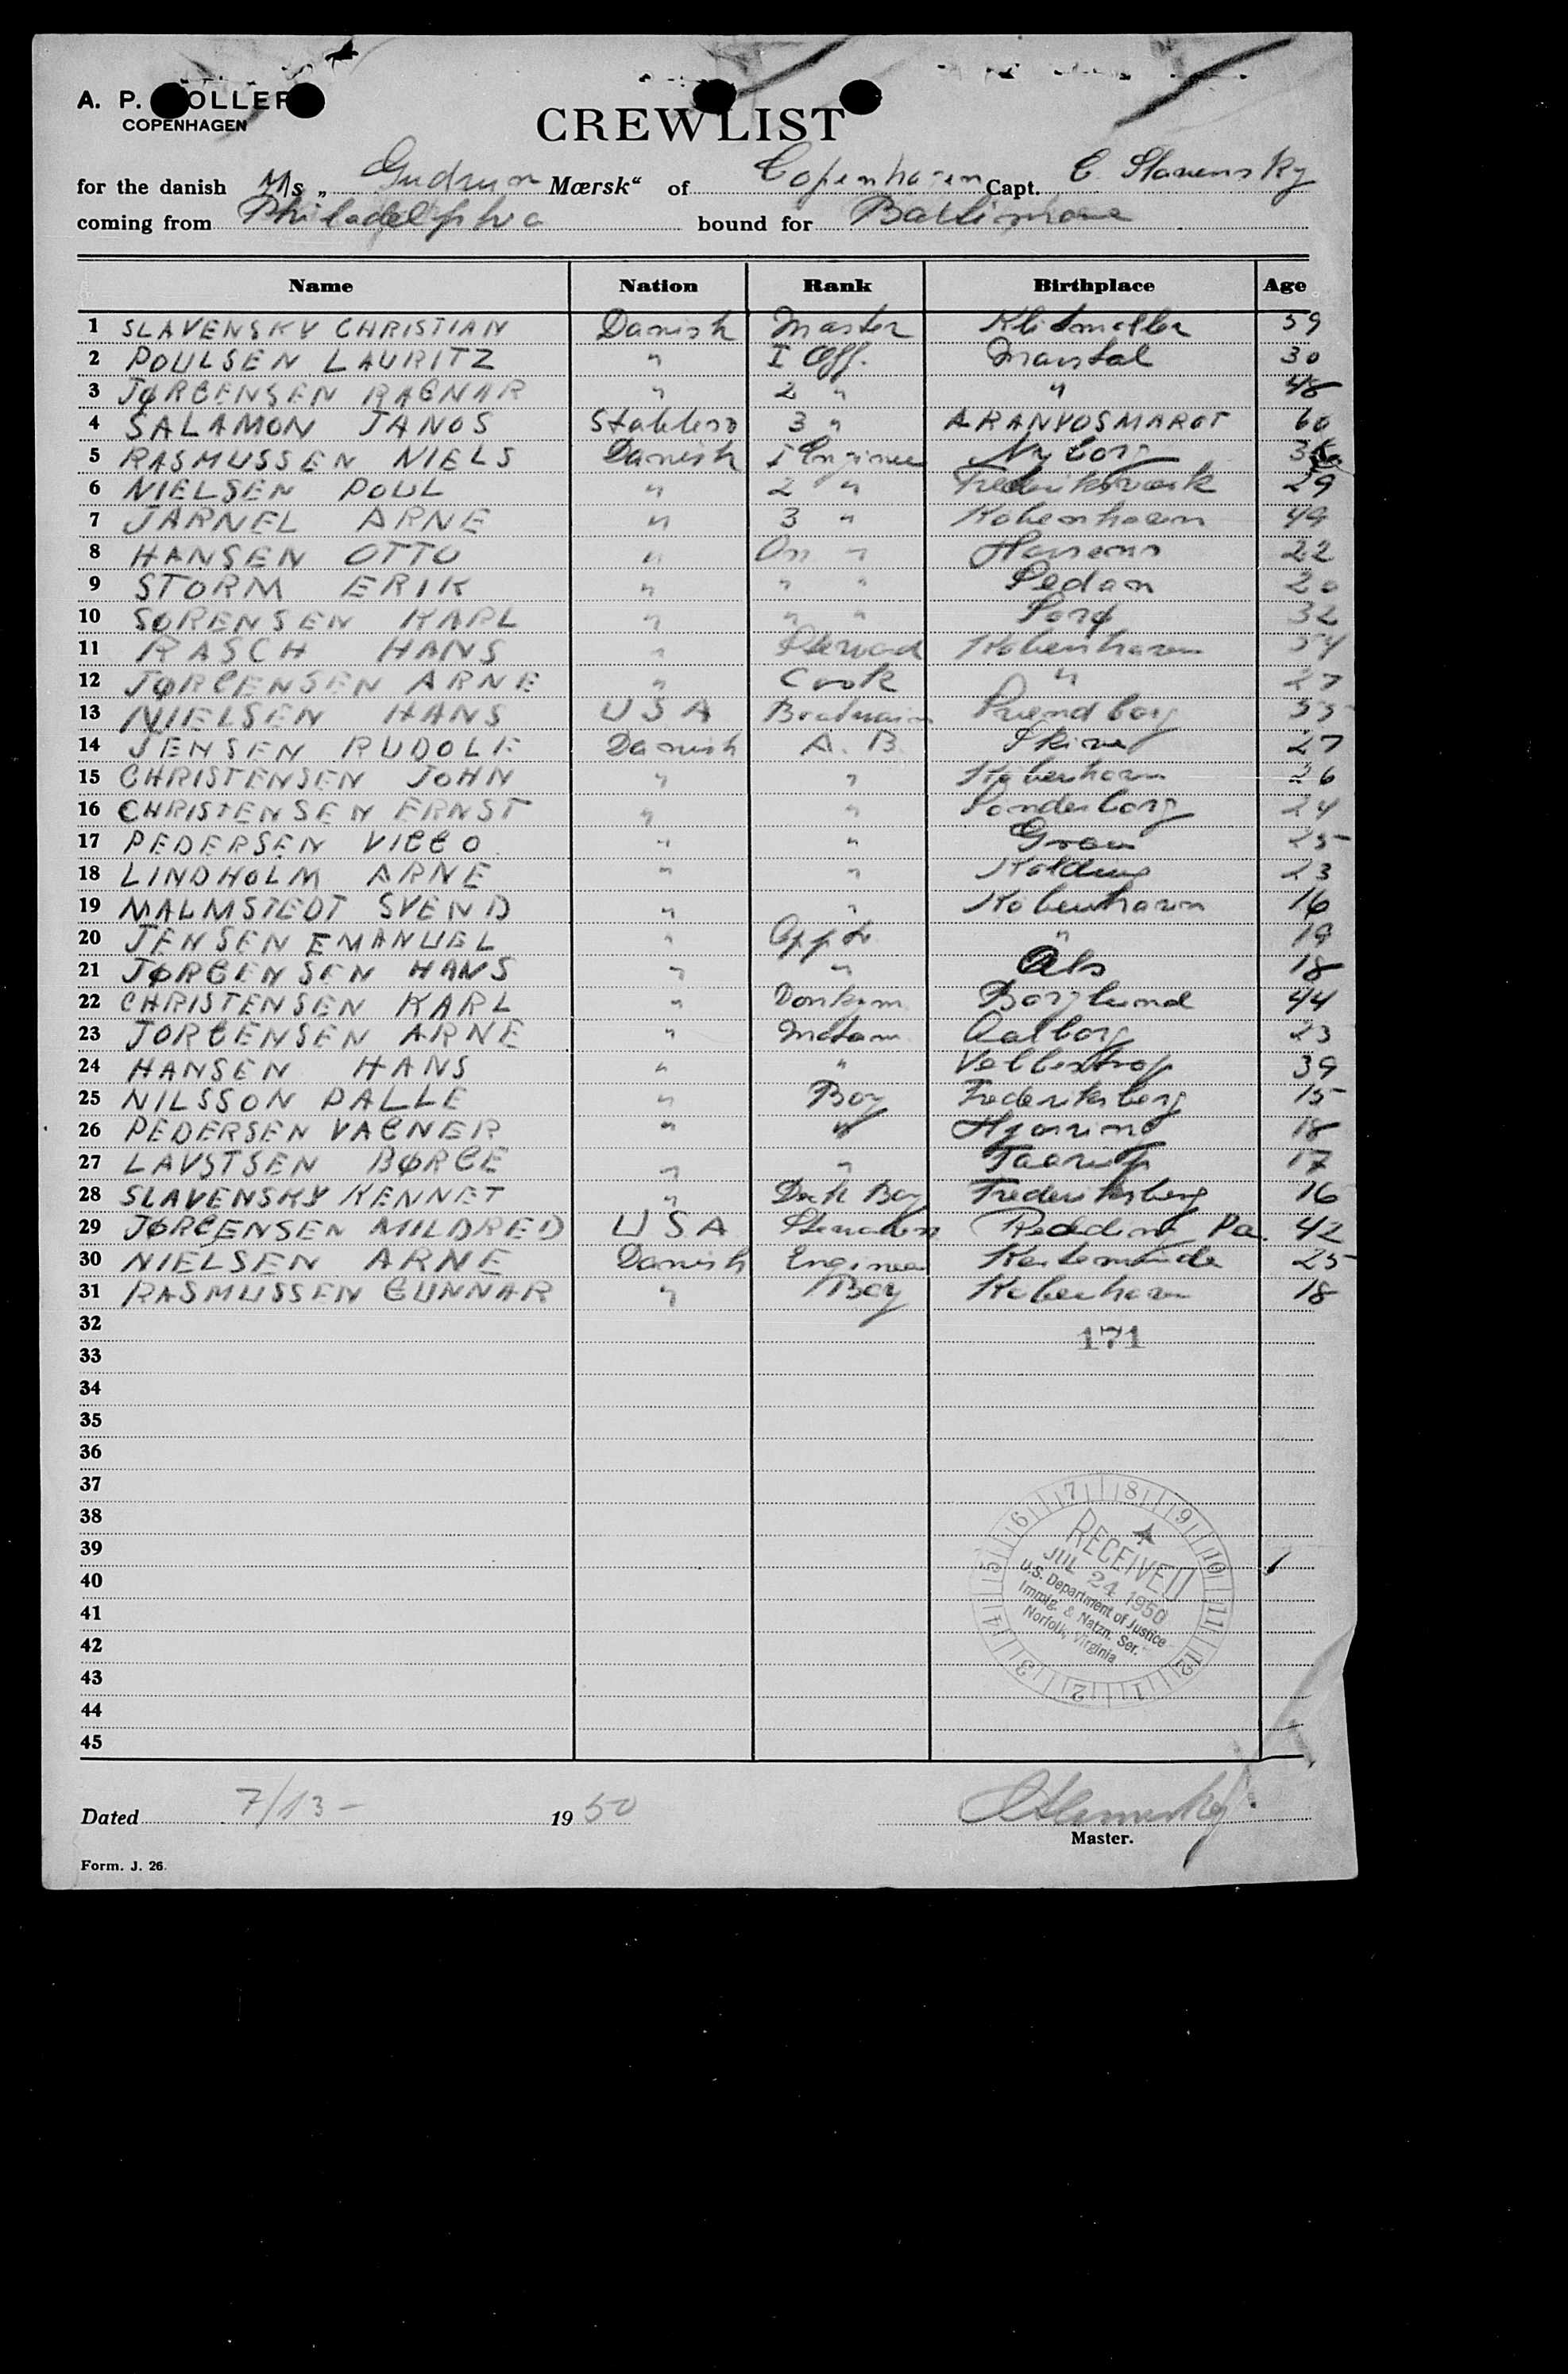 A. P. MOLLER
COPENHAGEN
CREW LIST
for the danish M/s „ Gudrun Mærsk“ of Copenhagen Capt. C. Slavensky
coming from Philadelphia bound for Baltimore
Name Nation Rank Birthplace Age
1 SLAVENSKY CHRISTIAN Danish Master Klitmøller 59
2 POULSEN LAURITZ " I Off. Marstal 30
3 JØRGENSEN RAGNAR " 2 " " 48
4 SALAMON JANOS Stateless 3 " ARANYOSMAROT 60
5 RASMUSSEN NIELS Danish I Engineer Nyborg
6 NIELSEN POUL " 2 " Frederiksværk 29
7 JARNEL ARNE " 3 " København 49
8 HANSEN OTTO " " 22
9 STORM ERIK " " " 20
10 SØRENSEN KARL " " " Sorø 32
11 RASCH HANS " Steward København 54
12 JØRGENSEN ARNE " Cook " 27
13 NIELSEN HANS USA Boatswain Svendborg 35
14 JENSEN RUDOLF Danish A. B. Skive 27
15 CHRISTENSEN JOHN " " København 26
16 CHRISTENSEN ERNST " " Sønderborg 24
17 PEDERSEN VIGGO " " Gram 25
18 LINDHOLM ARNE " " Kolding 23
19 MALMSTEDT SVEND " " København 16
20 JENSEN EMANUEL " " 19
21 JØRGENSEN HANS " " Als 18
22 CHRISTENSEN KARL " Donkym. Borglund 44
23 JØRGENSEN ARNE " Motorm. Aalborg 23
24 HANSEN HANS " " 39
25 NILSSON PALLE " Boy Frederiksberg 15
26 PEDERSEN VAGNER " " Hjørring 18
27 LAVSTSEN BØRGE " " Taarup 17
28 SLAVENSKY KENNET " Deck Boy Frederiksberg 16
29 JØRGENSEN MILDRED USA Stewardess Redding Pa. 42
30 NIELSEN ARNE Danish Engineer Kerteminde 25
31 RASMUSSEN GUNNAR " Boy København 18
32
171
33
34
35
36
37
38
39
40
41
42
43
44
45
RECEIVED
JUL 24 1950
U.S. Department of Justice
Immig. & Natzn. Ser.
Norfolk, Virginia
1 2 3 4 5 6 7 8 9 10 11 12
Dated 7/13- 1950
Master.
Form. J. 26.